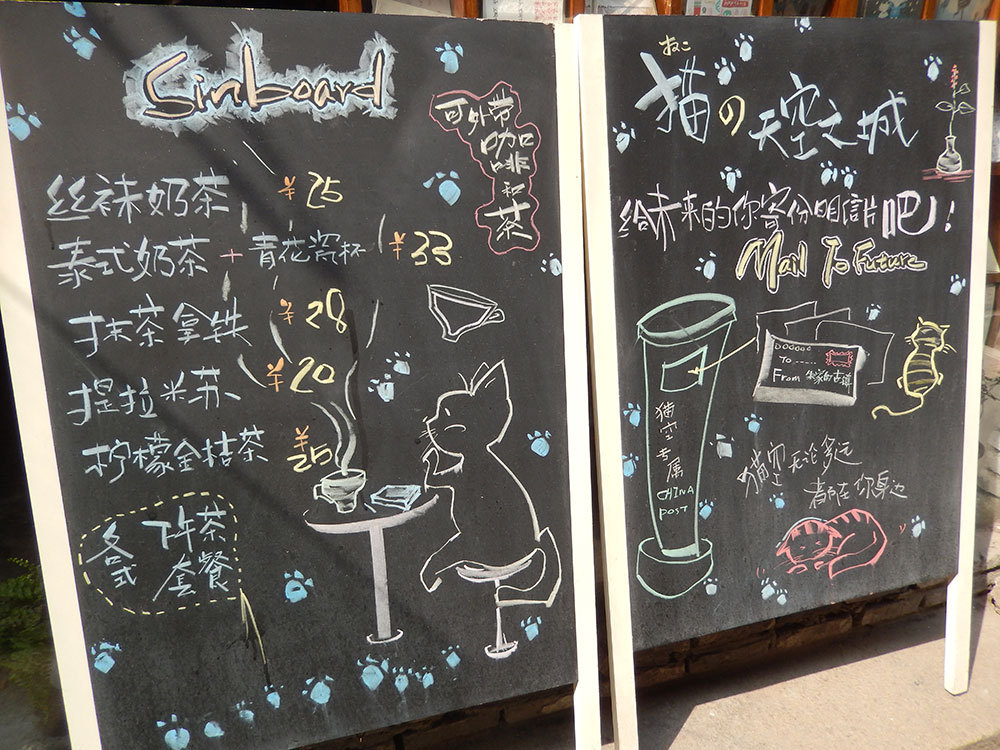 Sinboard
可外带
咖啡和茶
丝袜奶茶 ¥25
泰式奶茶 + 青花瓷杯 ¥33
抹茶拿铁 ¥28
提拉米苏 ¥20
柠檬金桔茶 ¥25
各式 下午茶
套餐
ねこ
猫の天空之城
给未来的你寄份明信片吧!
Mail To Future
DOOOOO
To......
From 朱家的古镇
猫空专属
CHINA
POST
猫空无论多远
都在你身边